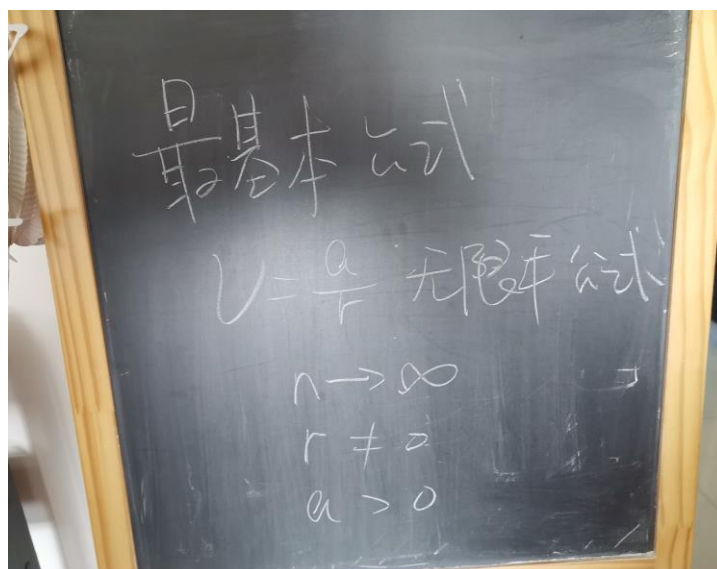 最基本公式
V=a/r 无限年公式
n→∞
r≠0
a>0